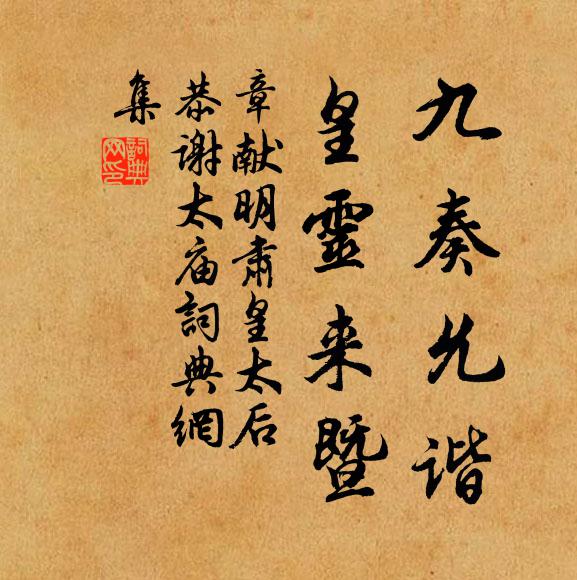 九奏允谐
皇靈来暨
章献明肅皇太后
恭谢太庙詞典網
集
詞典網印